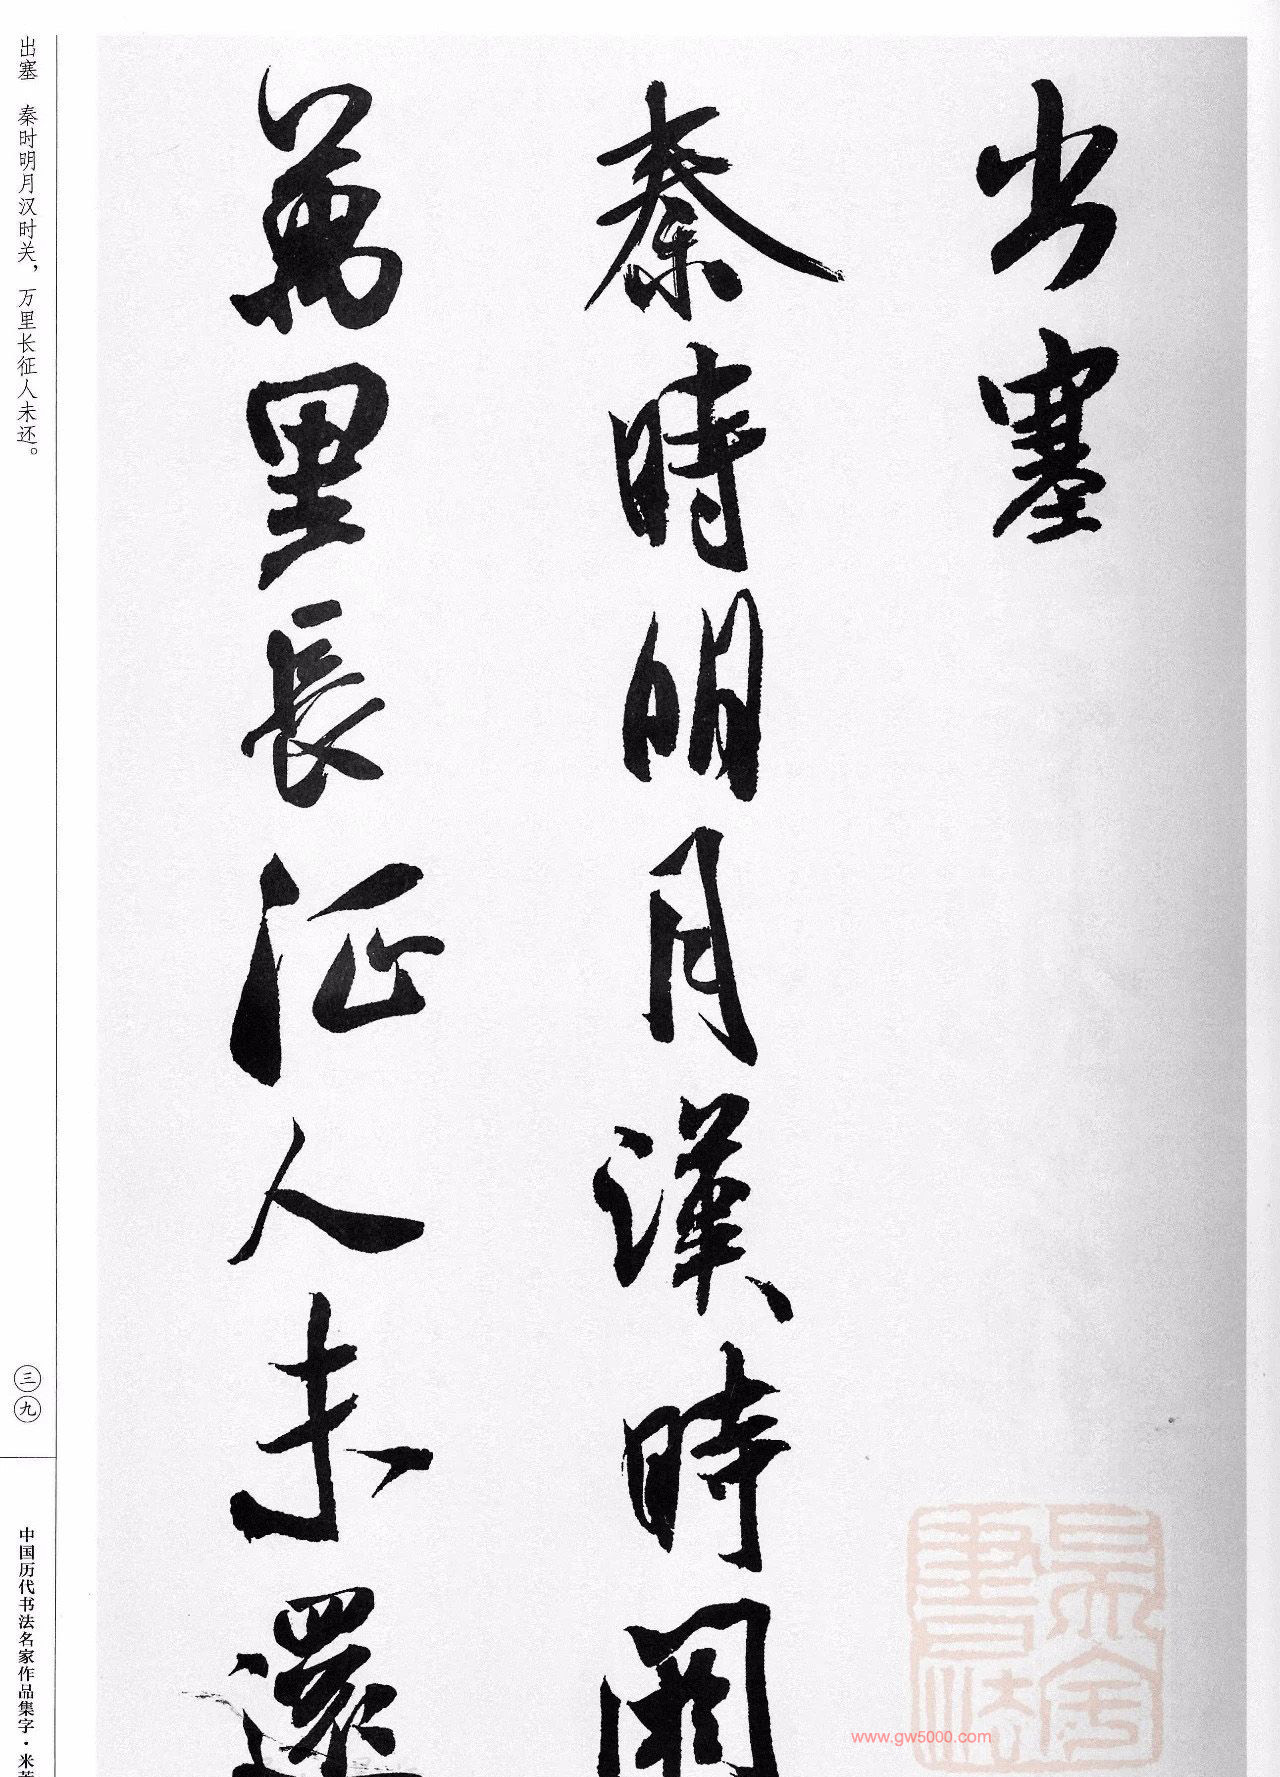 出塞
秦時明月漢時關
萬里長征人未還
出塞 秦时明月汉时关，万里长征人未还。
三九
中国历代书法名家作品集字·米
www.gw5000.com